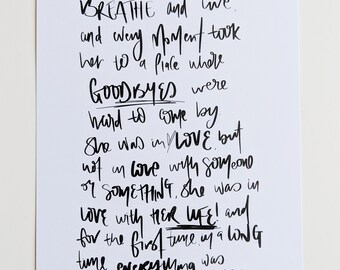 BREATHE and live.
and every moment took
her to a place where
GOODBYES were
hard to come by
She was in LOVE, but
not in love with someone
or SOMETHING, She was in
LOVE with HER LIFE! and
for the first time, in a LONG
time everything was